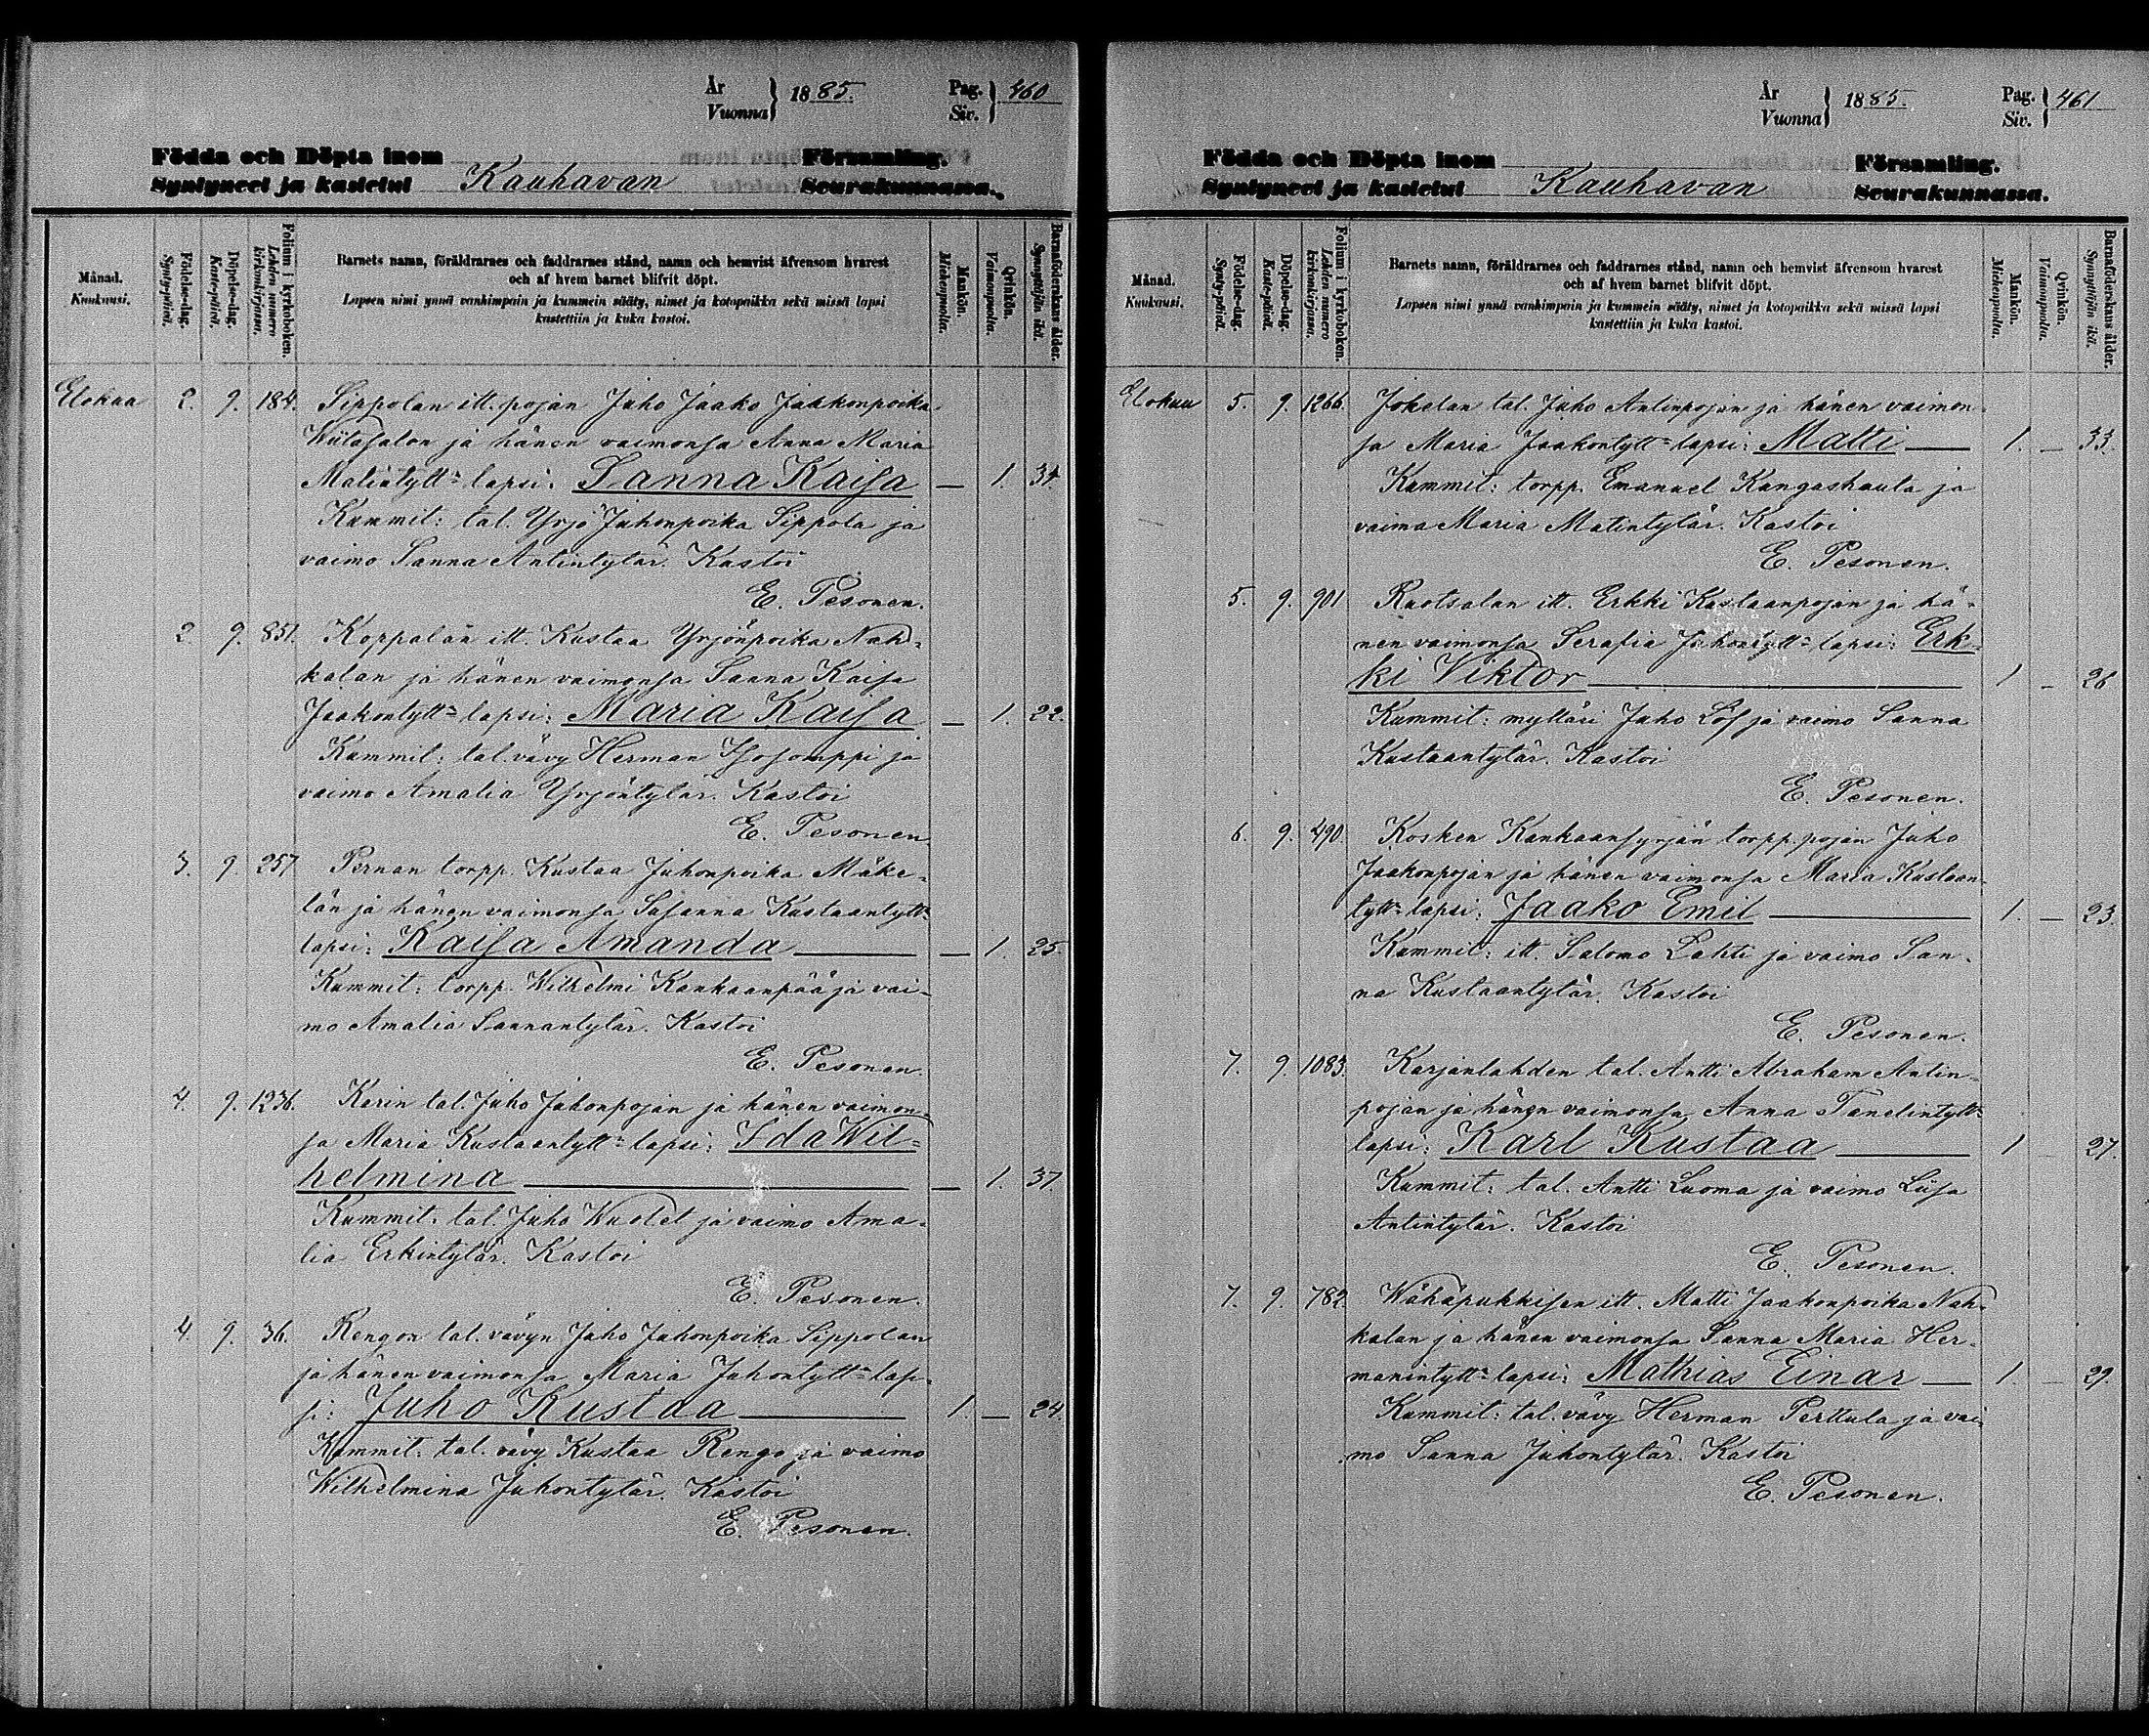 År
Vuonna } 1885.
Pag.
Siv. } 460
Födda och Döpta inom Församling.
Syntyneet ja kastetut Kauhavan Seurakunnassa.
Månad.
Kuukausi.
Födelse-dag.
Synty-päivä.
Döpelse-dag.
Kaste-päivä.
Folium i kyrkoboken.
Lehden numero kirkonkirjassa.
Barnets namn, föräldrarnes och faddrarnes stånd, namn och hemvist äfvensom hvarest
och af hvem barnet blifvit döpt.
Lapsen nimi ynnä vanhimpain ja kummein sääty, nimet ja kotopaikka sekä missä lapsi
kastettiin ja kuka kastoi.
Mankön.
Miehenpuolta.
Qvinkön.
Vaimonpuolta.
Barnaföderskans ålder.
Synnyttäjän ikä.
Elokuu 2. 9. 184. Sippolan itt. pojan Juho Jaako Jaakkonpoika
Wiitasalon ja hänen vaimonsa Anna Maria
Matintytt= lapsi: Sanna Kaisa — 1. 34.
Kummit: tal. Yrjö Juhonpoika Sippola ja
vaimo Sanna Antintytär. Kastoi
E. Pesonen.
2. 9. 851. Koppalan itt. Kustaa Yrjönpoika Nah=
kalan ja hänen vaimonsa Sanna Kaisa
Jaakontytt= lapsi: Maria Kaisa — 1. 22.
Kummit: tal. vävy Herman Isosomppi ja
vaimo Amalia Yrjöntytär. Kastoi
E. Pesonen
3. 9. 257 Pernan torpp. Kustaa Juhonpoika Mäke=
län ja hänen vaimonsa Susanna Kustaantytt=
lapsi: Kaisa Amanda — 1. 25.
Kummit: torpp. Wilhelmi Kankaanpää ja vai-
mo Amalia Sannantytär. Kastoi
E. Pesonen.
4. 9. 1236. Karin tal. Juho Juhonpojan ja hänen vaimon=
sa Maria Kustaantytt= lapsi: Ida Wil=
helmina — 1. 37.
Kummit: tal. Juho Wuolet ja vaimo Ama-
lia Erkintytär. Kastoi
E. Pesonen.
4. 9. 36. Rengon tal. vävyn Juho Juhonpoika Sippolan
ja hänen vaimonsa Maria Juhontytt= lap-
si: Juho Kustaa 1. — 24.
Kummit: tal. vävy Kustaa Rengo ja vaimo
Wilhelmina Juhontytär. Kastoi
E. Pesonen.
År
Vuonna } 1885.
Pag.
Siv. } 461
Födda och Döpta inom Församling.
Syntyneet ja kastetut Kauhavan Seurakunnassa.
Månad.
Kuukausi.
Födelse-dag.
Synty-päivä.
Döpelse-dag.
Kaste-päivä.
Folium i kyrkoboken.
Lehden numero kirkonkirjassa.
Barnets namn, föräldrarnes och faddrarnes stånd, namn och hemvist äfvensom hvarest
och af hvem barnet blifvit döpt.
Lapsen nimi ynnä vanhimpain ja kummein sääty, nimet ja kotopaikka sekä missä lapsi
kastettiin ja kuka kastoi.
Mankön.
Miehenpuolta.
Qvinkön.
Vaimonpuolta.
Barnaföderskans ålder.
Synnyttäjän ikä.
Elokuu 5. 9. 1266. Jokelan tal. Juho Antinpojan ja hänen vaimon-
sa Maria Jaakontytt= lapsi: Matti 1. — 33.
Kummit: torpp. Emanuel Kangashauta ja
vaimo Maria Matintytär. Kastoi
E. Pesonen.
5. 9. 901 Ruotsalan itt. Erkki Kustaanpojan ja hä-
nen vaimonsa Serafia Juhontytt= lapsi: Erk-
ki Viktor 1 — 26
Kummit: mylläri Juho Löf ja vaimo Sanna
Kustaantytär. Kastoi
E. Pesonen.
6. 9. 490. Kosken Kankaansyrjän torpp. pojan Juho
Jaakonpojan ja hänen vaimonsa Maria Kustaan-
tytt= lapsi: Jaako Emil 1. — 23.
Kummit: itt. Salomo Lahti ja vaimo San-
na Kustaantytär. Kastoi
E. Pesonen.
7. 9. 1083. Karjanlahden tal. Antti Abraham Antin-
pojan ja hänen vaimonsa Anna Tanelintytt=
lapsi: Karl Kustaa 1 27.
Kummit: tal. Antti Luoma ja vaimo Liisa
Antintytär. Kastoi
E. Pesonen.
7. 9. 782 Wähäpukkisen itt. Matti Jaakonpoika Nah-
kalan ja hänen vaimonsa Sanna Maria Her-
manintytt= lapsi: Mathias Einar 1. — 29
Kummit: tal. vävy Herman Perttula ja vai-
mo Sanna Juhontytär. Kastoi
E. Pesonen.